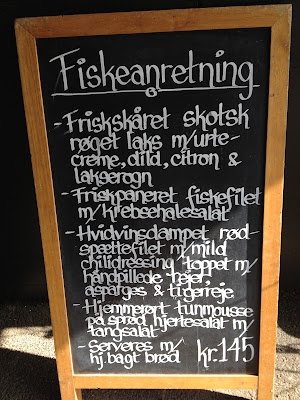 Fiskeanretning
- Friskskåret skotsk
røget laks m/urte-
creme, dild, citron &
lakserogn
- Friskpaneret fiskefilet
m/krebsehalesalat
- Hvidvinsdampet rød-
spættefilet m/mild
chilidressing toppet m/
håndpillede rejer,
asparges & tigerreje
- Hjemmerørt tunmousse
på sprød hjertesalat m/
tangsalat
- Serveres m/
hj.bagt brød kr. 145